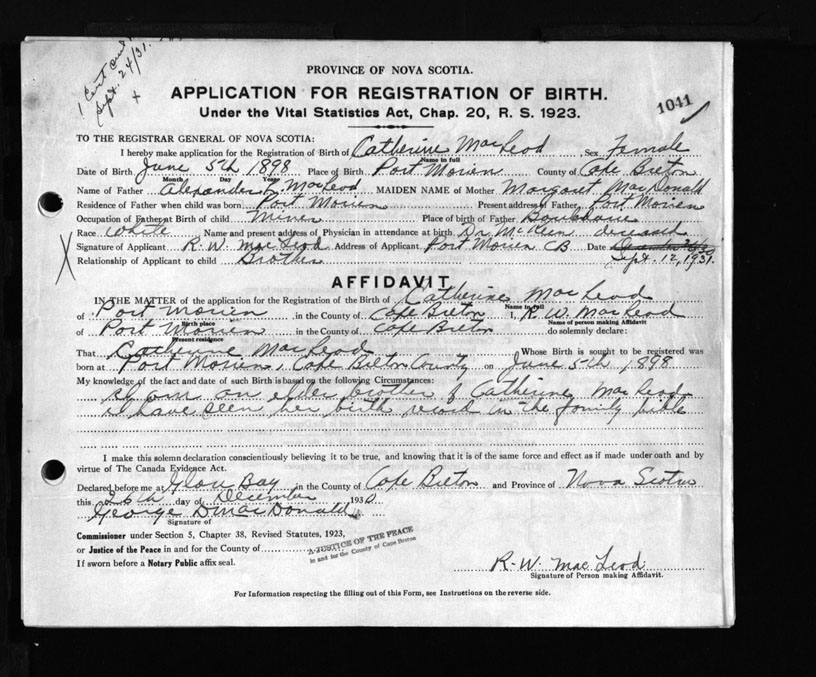 1 Cert
Sept. 24/31.
x
PROVINCE OF NOVA SCOTIA.
APPLICATION FOR REGISTRATION OF BIRTH.
1041
Under the Vital Statistics Act, Chap. 20, R. S. 1923.
TO THE REGISTRAR GENERAL OF NOVA SCOTIA:
I hereby make application for the Registration of Birth of Catherine MacLeod Sex Female
Name in full
Date of Birth June 5th 1898 Place of Birth Port Morien County of Cape Breton
Month Day Year
Name of Father Alexander MacLeod MAIDEN NAME of Mother Margaret MacDonald
Residence of Father when child was born Port Morien Present address of Father, Port Morien
Occupation of Father at Birth of child Miner Place of birth of Father
Race White Name and present address of Physician in attendance at birth. Dr. McKeen deceased
Signature of Applicant R. W. MacLeod Address of Applicant Port Morien CB Date
Sept. 12, 1931.
Relationship of Applicant to child Brother
X
AFFIDAVIT
IN THE MATTER of the application for the Registration of the Birth of Catherine MacLeod
Name in full
of Port Morien in the County of Cape Breton I, R. W. MacLeod
Birth place Name of person making Affidavit
of Port Morien in the County of Cape Breton do solemnly declare:
Present residence
That Catherine MacLeod Whose Birth is sought to be registered was
born at Port Morien, Cape Breton County on June 5th, 1898
My knowledge of the fact and date of such Birth is based on the following Circumstances:
I am an elder brother of Catherine MacLeod
& have seen her birth record in the family bible
I make this solemn declaration conscientiously believing it to be true, and knowing that it is of the same force and effect as if made under oath and by
virtue of The Canada Evidence Act.
Declared before me at Glace Bay in the County of Cape Breton and Province of Nova Scotia
this day of December 1930.
George D. MacDonald
Signature of
Commissioner under Section 5, Chapter 38, Revised Statutes, 1923,
or Justice of the Peace in and for the County of
A JUSTICE OF THE PEACE
in and for the County of Cape Breton
If sworn before a Notary Public affix seal.
R. W. MacLeod
Signature of Person making Affidavit.
For Information respecting the filling out of this Form, see Instructions on the reverse side.